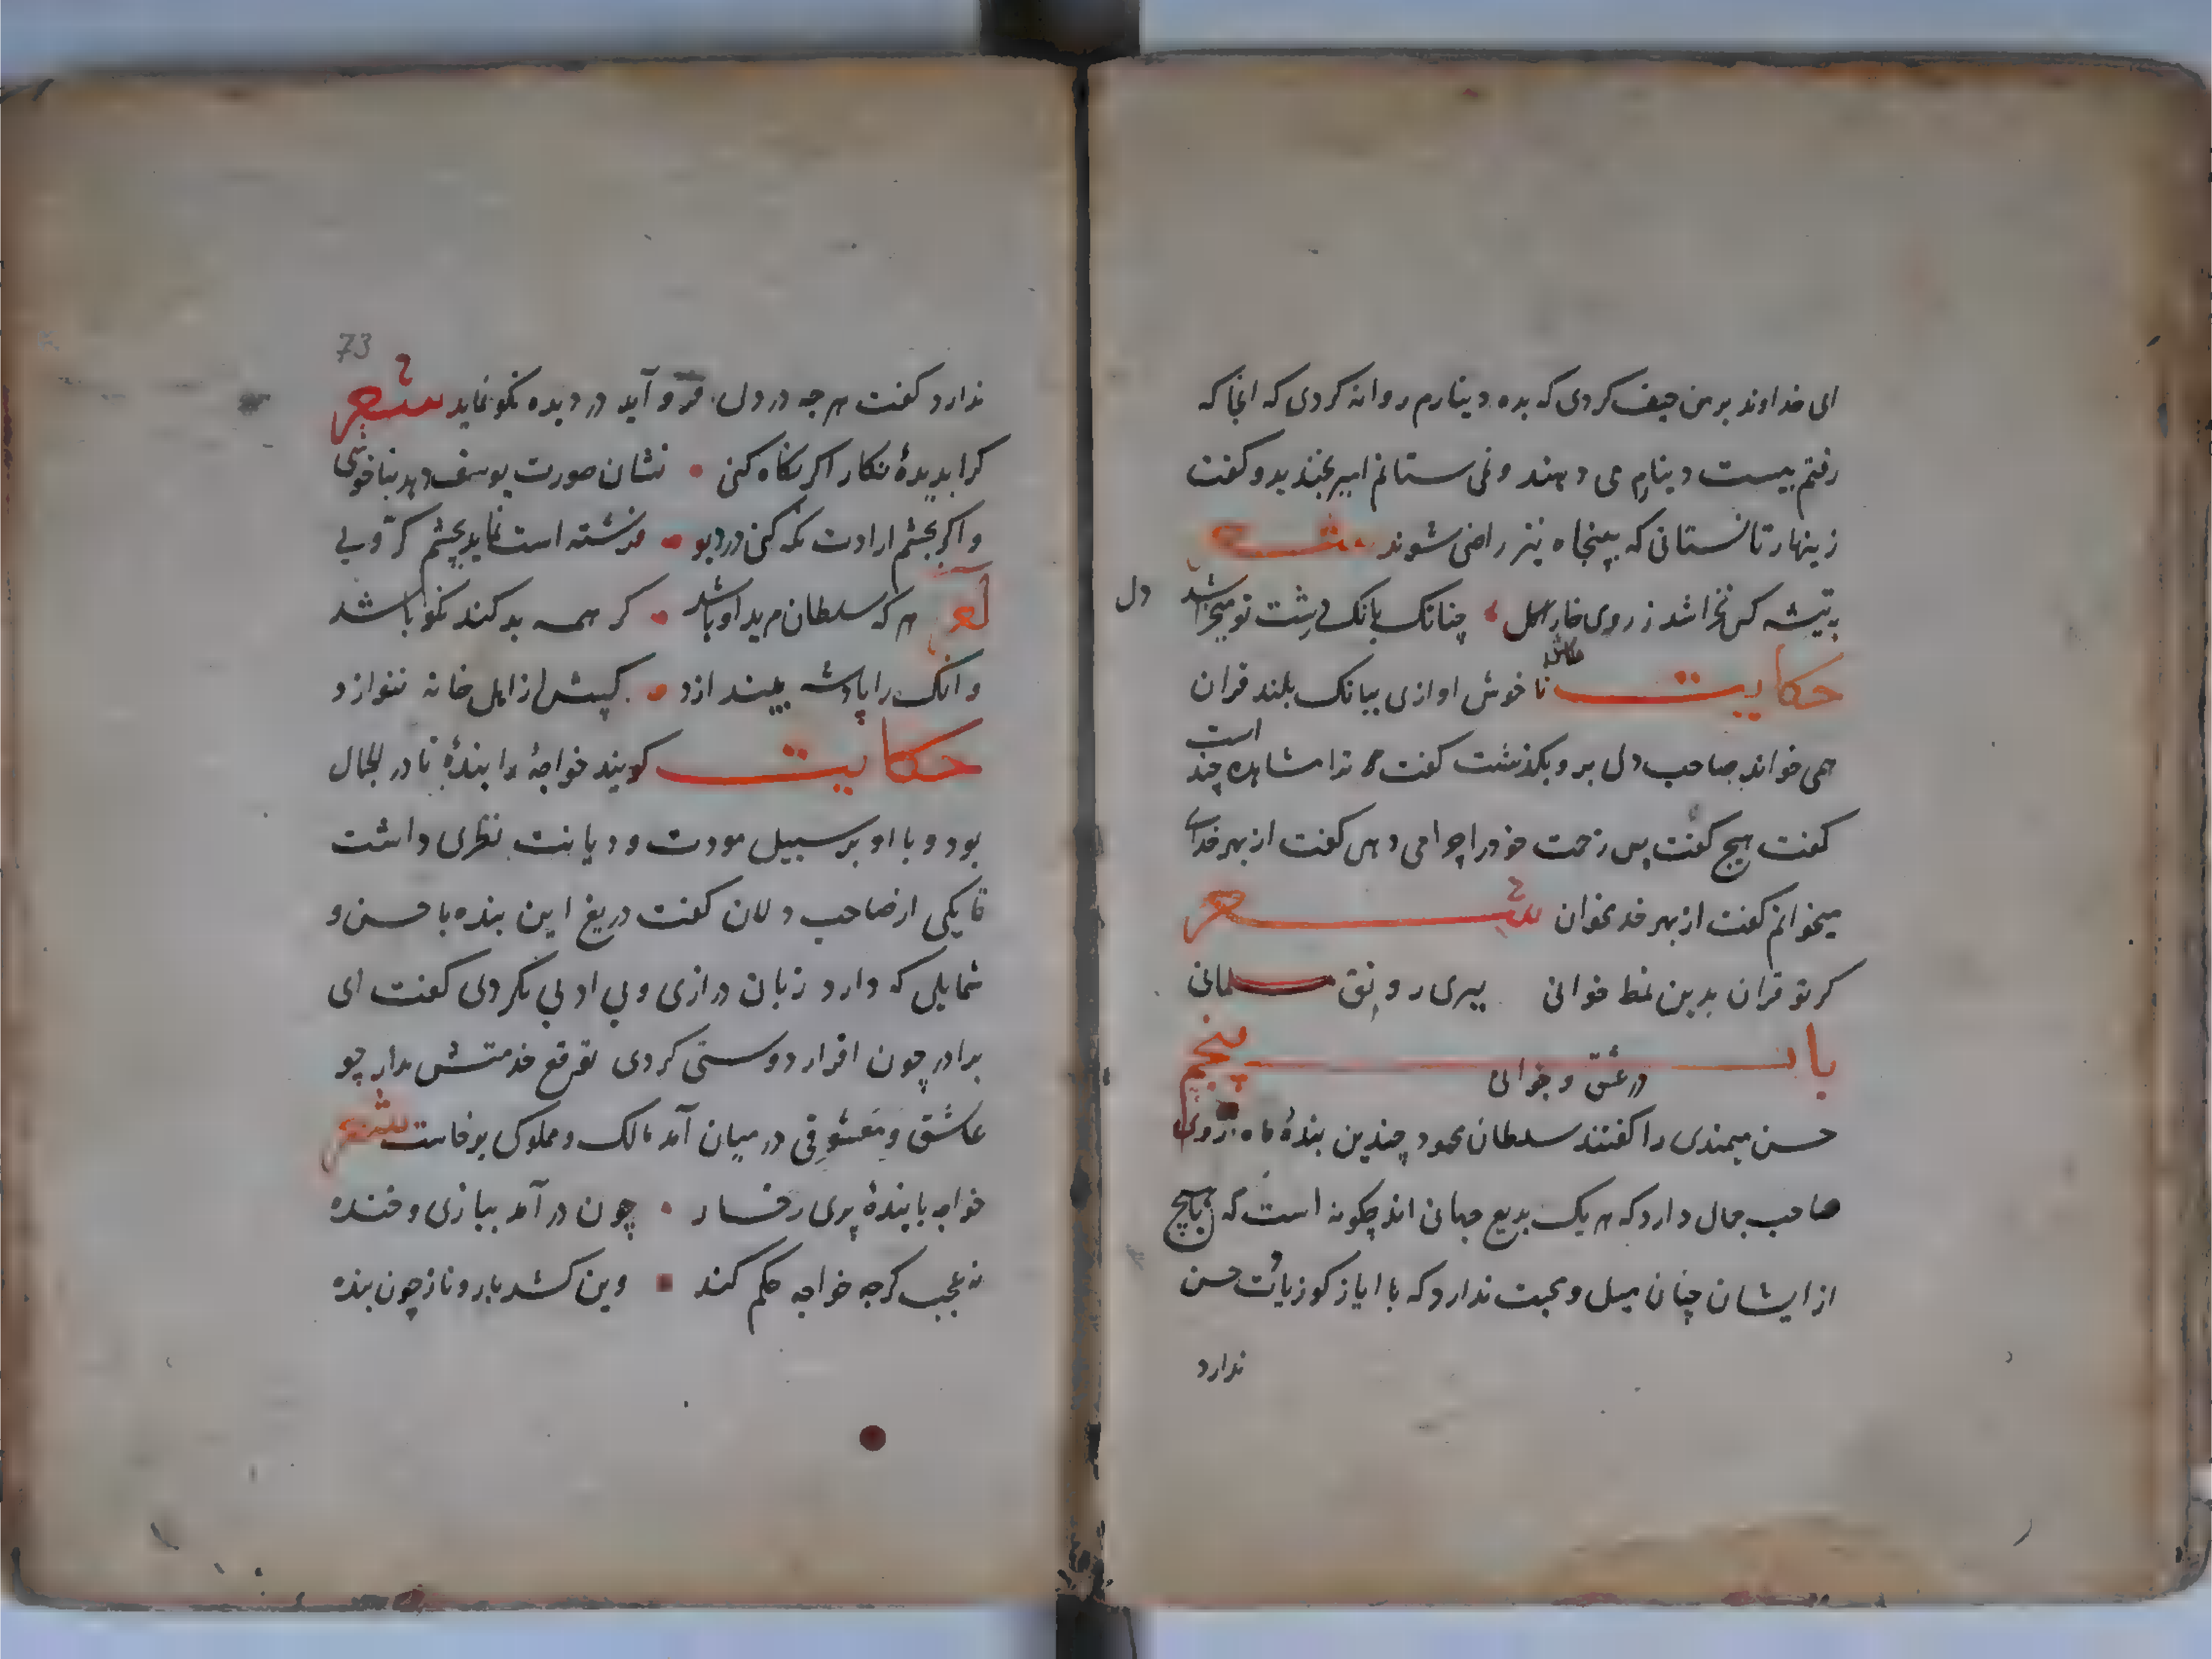 ای خداوند بر من حیف کردی که بده دینارم روانه کردی که انجا که
رفتم بیست دینارم می دهند و نمی ستانم امیر بخندید و کفت
زینهار تا نستانی که بپنجاه نیز راضی شوند شعر
بتیشه کس نخراشد ز روی خارا کل چنانک بانک درشت تو میخراشد دل
حکایت نا خوش اوازی ببانک بلند قران
همی خواند صاحب دل برو بکذشت کفت ترا مشاهره چند است
کفت هیچ کفت پس زحمت خود را چرا می دهی کفت از بهر خدای
میخوانم کفت از بهر خدا مخوان شعر
کر تو قران بدین نمط خوانی ببری رونق مسلمانی
باب پنجم
در عشق و جوانی
حسن میمندی را کفتند سلطان محمود چندین بندهٔ ماه روی
صاحب جمال دارد که هر یک بدیع جهانی اند چکونه است که با هیچ
از ایشان چنان میل و محبت ندارد که با ایاز کو زیادت حسن
ندارد
73
ندارد کفت هر چه در دل فرو آید در دیده نکو نماید شعر
کرا بدیدهٔ نکار اکر نکاه کنی نشان صورت یوسف دهد بناخوبی
و اکر بچشم ارادت نکه کنی در دیو فرشته است نماید بچشم کرّوبی
هر که سلطان مرید او باشد کر همه بد کند نکو باشد
و انک را پادشه بیندازد کسش از اهل خانه ننوازد
حکایت کویند خواجهٔ را بندهٔ نادر الجمال
بود و با او بر سبیل مودت و دیانت نظری داشت
تا یکی از صاحب دلان کفت دریغ این بنده با حسن و
شمایلی که دارد زبان درازی و بی ادبی نکردی کفت ای
برادر چون اقرار دوستی کردی توقع خدمتش مدار چو
عاشق و معشوقی در میان آمد مالک و مملوکی برخاست شعر
خواجه با بندهٔ پری رخسار چون در آمد ببازی و خنده
نه عجب کرچه خواجه حکم کند وین کشد بار و ناز چون بنده